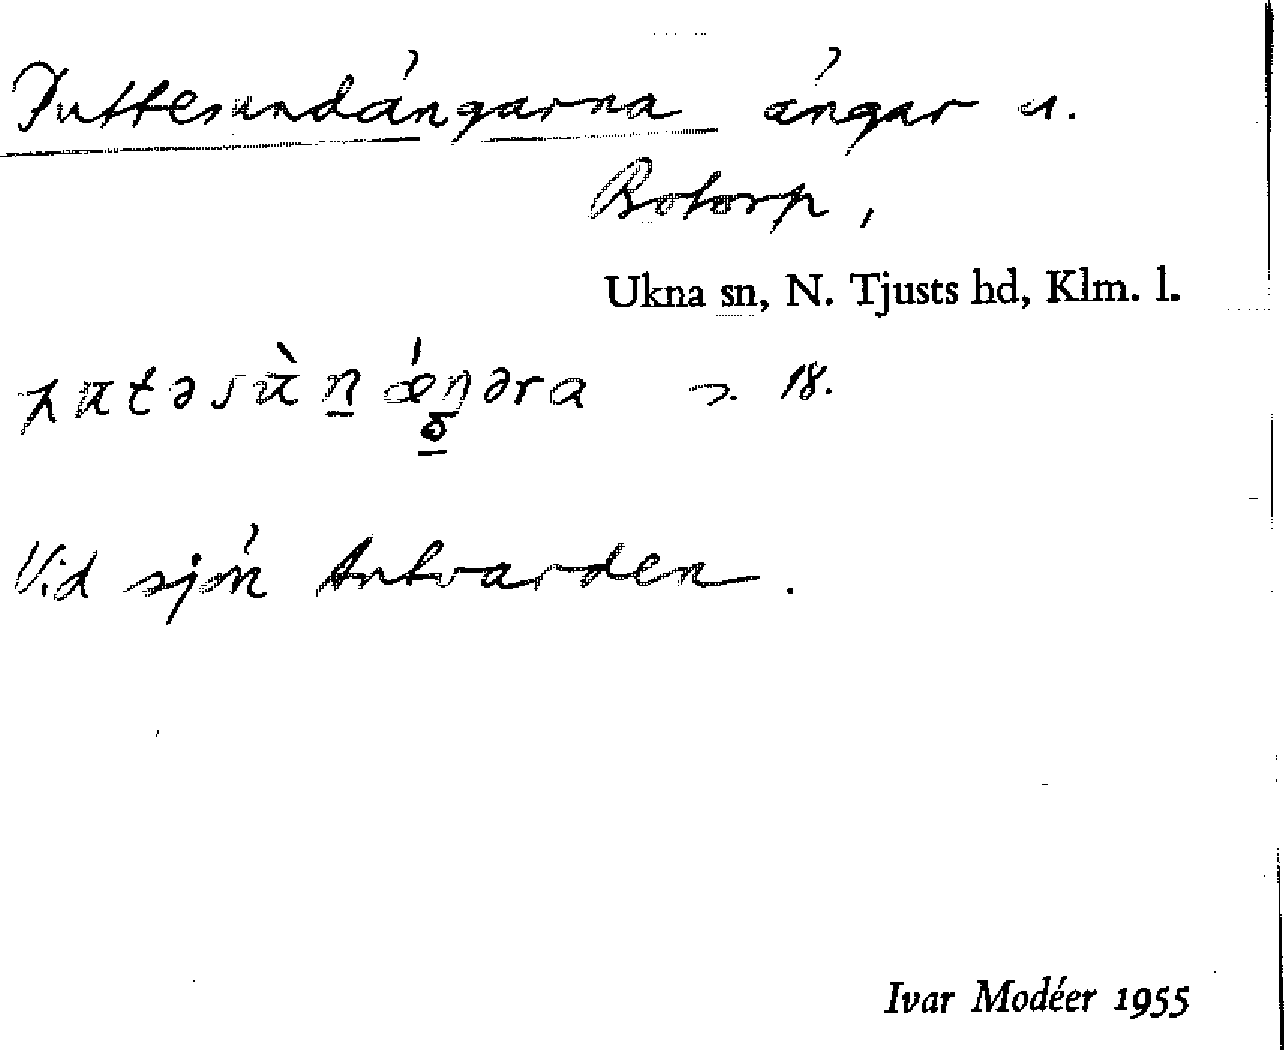 Juttesundängarna ängar u.
Botorp,
Ukna sn, N. Tjusts hd, Klm. l.
18.
Vid sjön Antvarden.
Ivar Modéer 1955